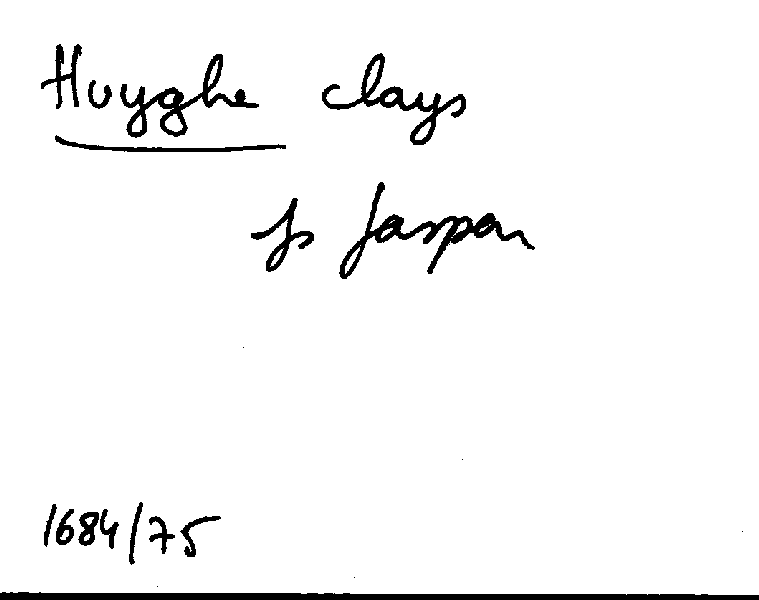 Huyghe clays
Js Jaspan
1684/75